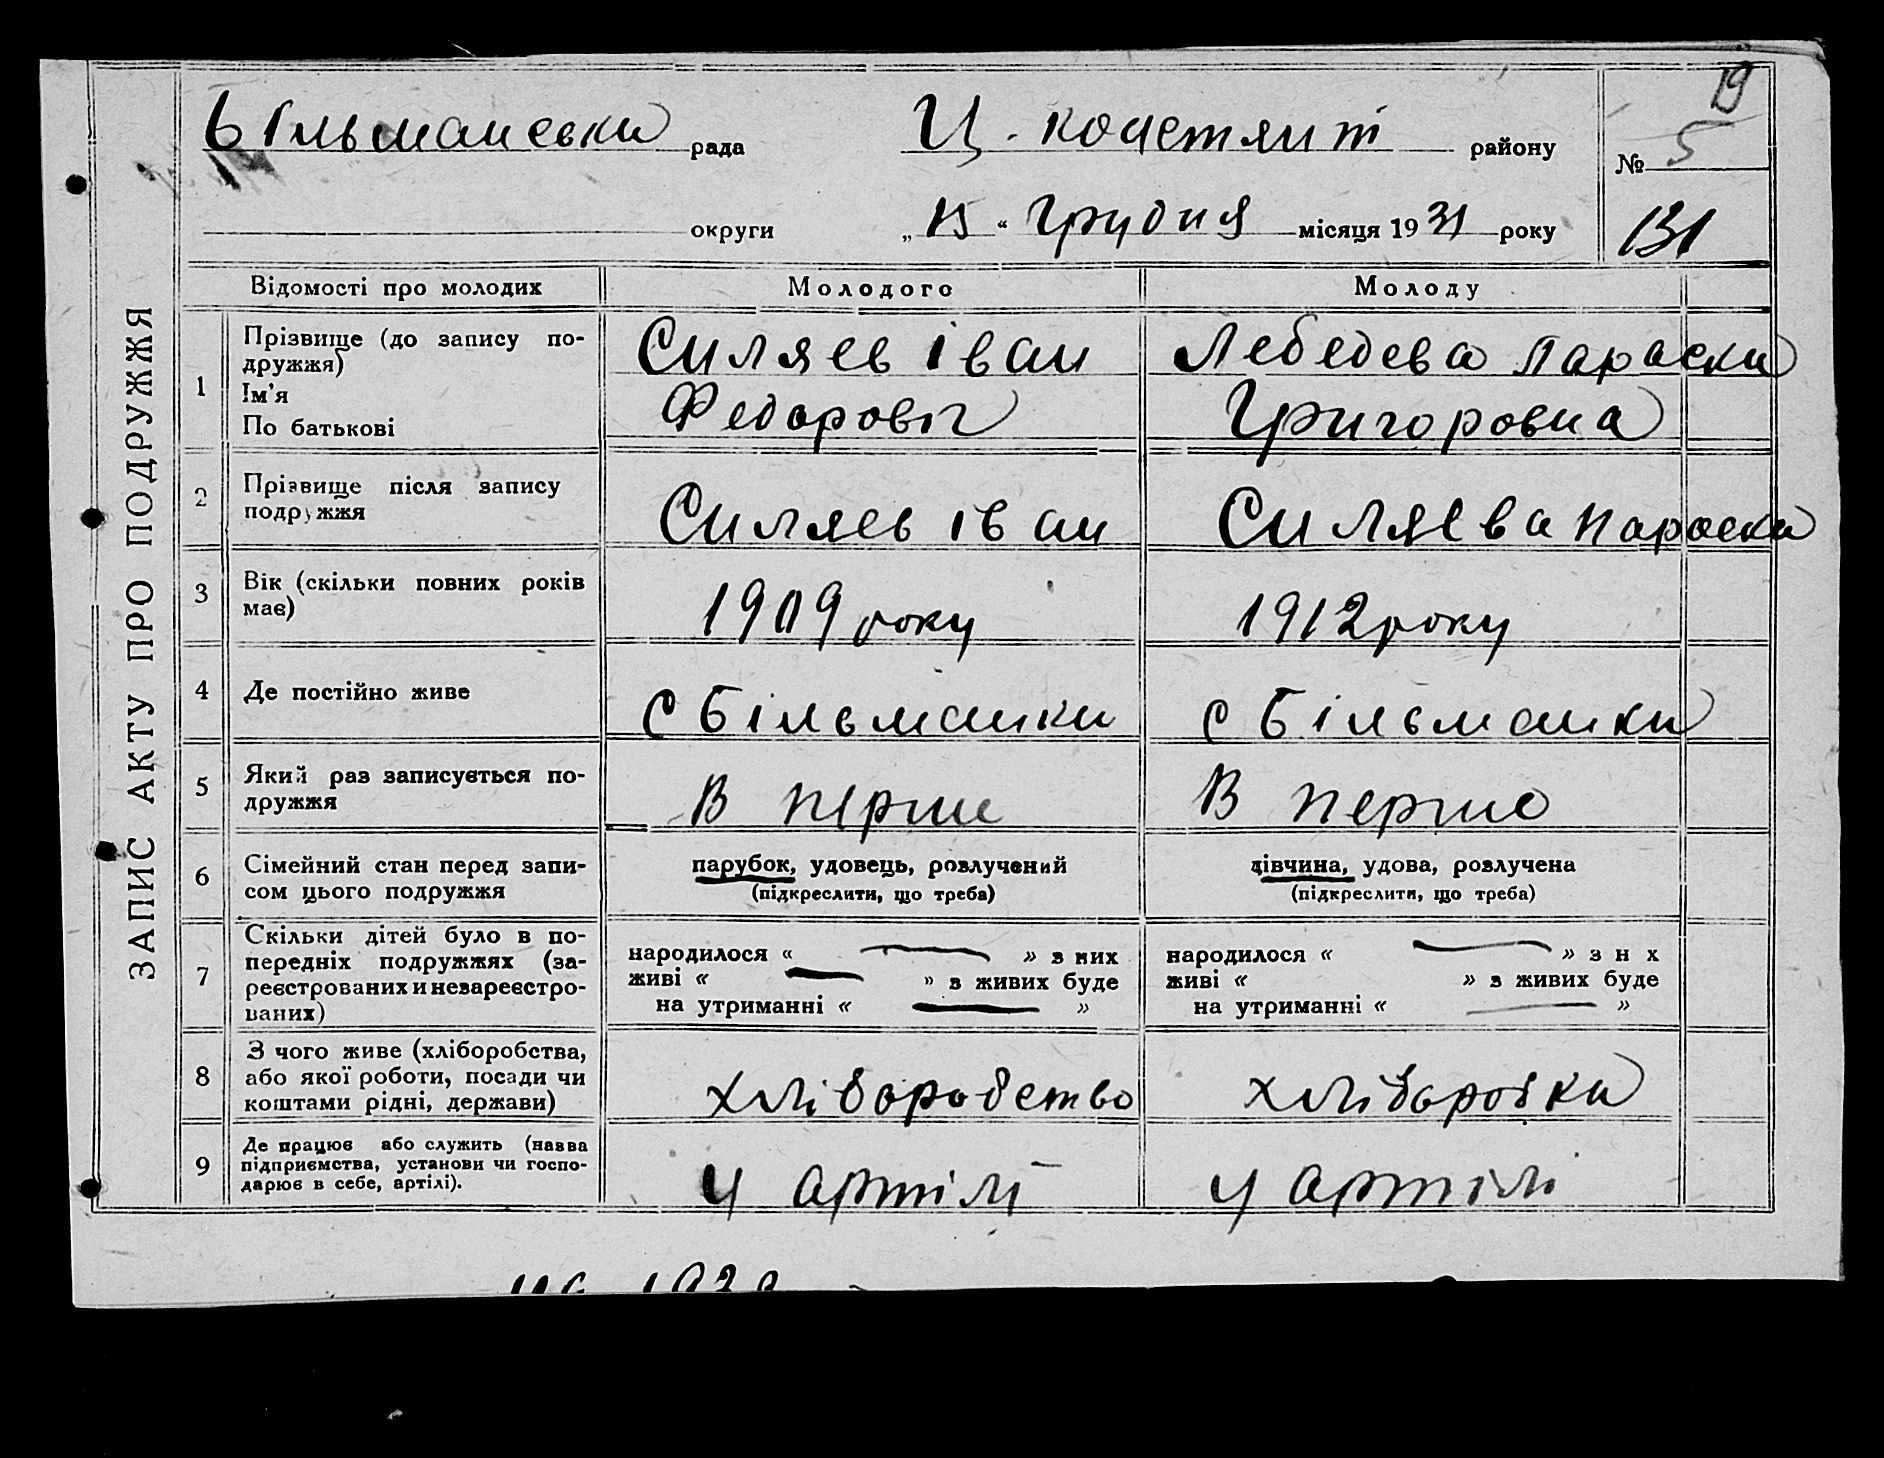 19
Більманськи рада Ц. констянт району № 5
округи „ 15 “ Грудня місяця 1931 року
131
ЗАПИС АКТУ ПРО ПОДРУЖЖЯ
Відомості про молодих Молодого Молоду
1 Прізвище (до запису по-
дружжя)
Ім’я
По батькові
Силяев Іван
Федоровіг
Лебедева Параски
Григоровна
2 Прізвище після запису
подружжя
Силяев Іван
Силяєва Параски
3 Вік (скільки повних років
має)
1909 року
1912 року
4 Де постійно живе
с Більманки
с Більманки
5 Який раз записується по-
дружжя
В перше
В перше
6 Сімейний стан перед запи-
сом цього подружжя
парубок, удовець, розлучений
(підкреслити, що треба)
дівчина, удова, розлучена
(підкреслити, що треба)
7 Скільки дітей було в по-
передніх подружжях (за-
реєстрованих и незареєстро-
ваних)
народилося « — » з них
живі « — » з живих буде
на утриманні « — »
народилося « — » з н х
живі « » з живих буде
на утриманні « — »
8 З чого живе (хліборобства,
або якої роботи, посади чи
коштами рідні, держави)
хліборобство
хліборобки
9 Де працює або служить (назва
підприємства, установи чи госпо-
дарює в себе, артілі).
у артілі
у артілі